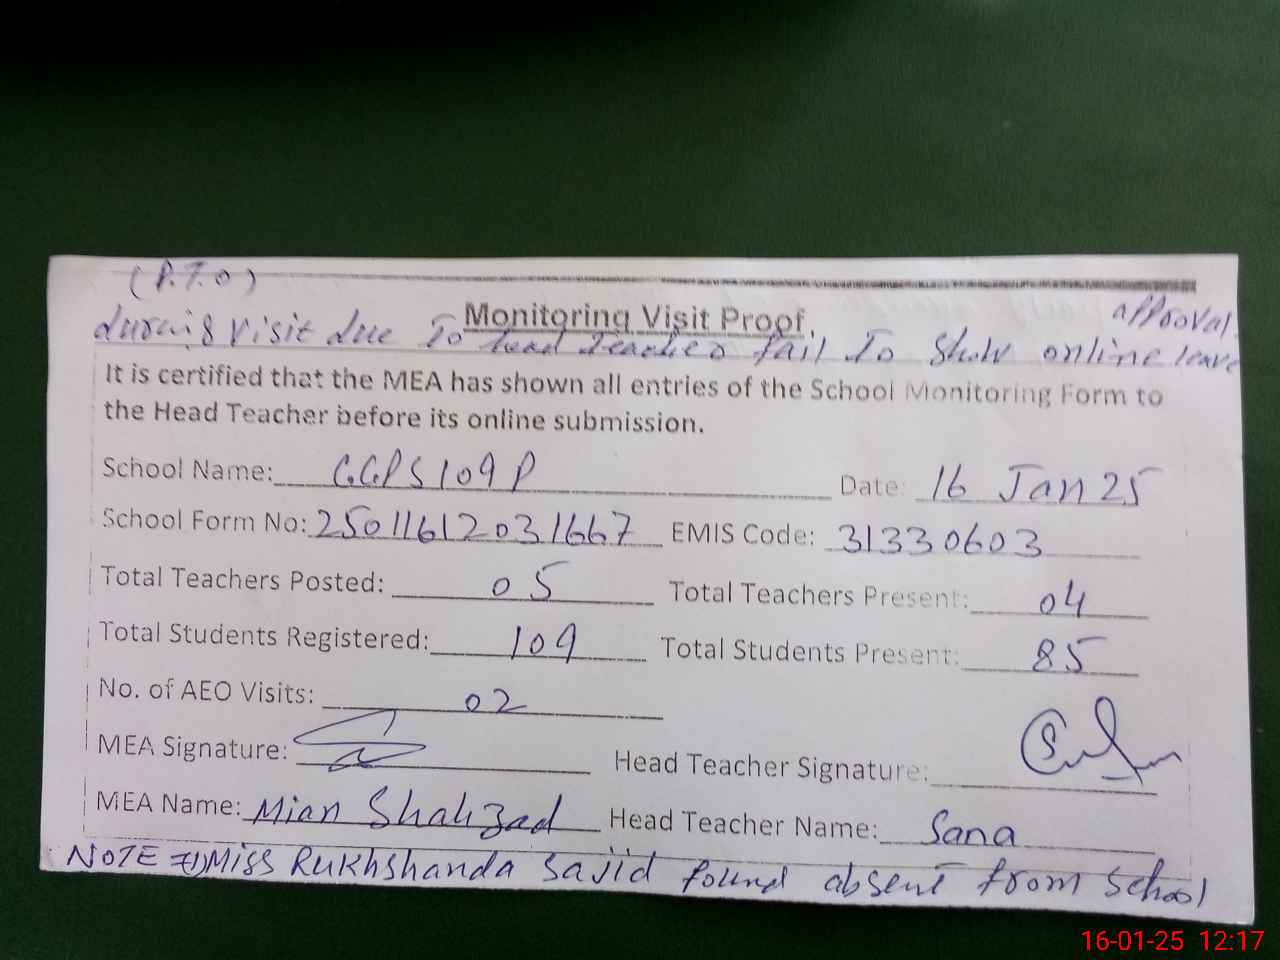 (P.T.O)
Monitoring Visit Proof
approval
during visit due To head Teacher fail To Show online leave
It is certified that the MEA has shown all entries of the School Monitoring Form to
the Head Teacher before its online submission.
School Name: GGPS 109 P Date: 16 Jan 25
School Form No: 25011612031667 EMIS Code: 31330603
Total Teachers Posted: 05 Total Teachers Present: 04
Total Students Registered: 109 Total Students Present: 85
No. of AEO Visits: 02
MEA Signature: Head Teacher Signature:
MEA Name: Mian Shahzad Head Teacher Name: Sana
NOTE ⇒ 1) Miss Rukhshanda Sajid found absent from School
16-01-25 12:17